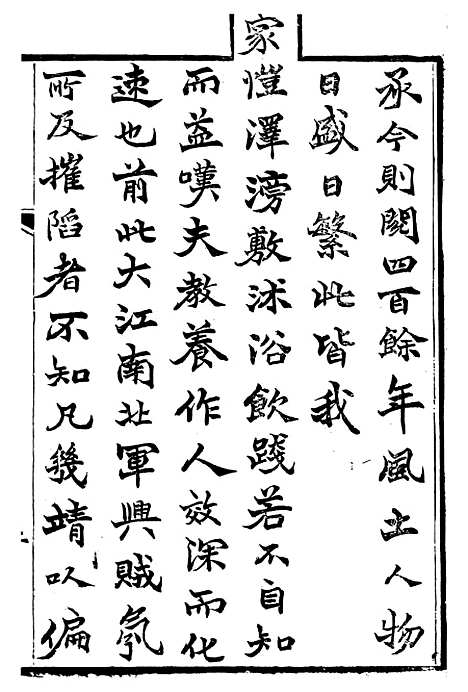 承今則閱四百餘年風土人物
日盛日繁此皆我
家愷澤滂敷沭浴飲踐若不自知
而益嘆夫教養作人效深而化
速也前此大江南北軍興賊氛
所及摧陷者不知凡幾靖以偏